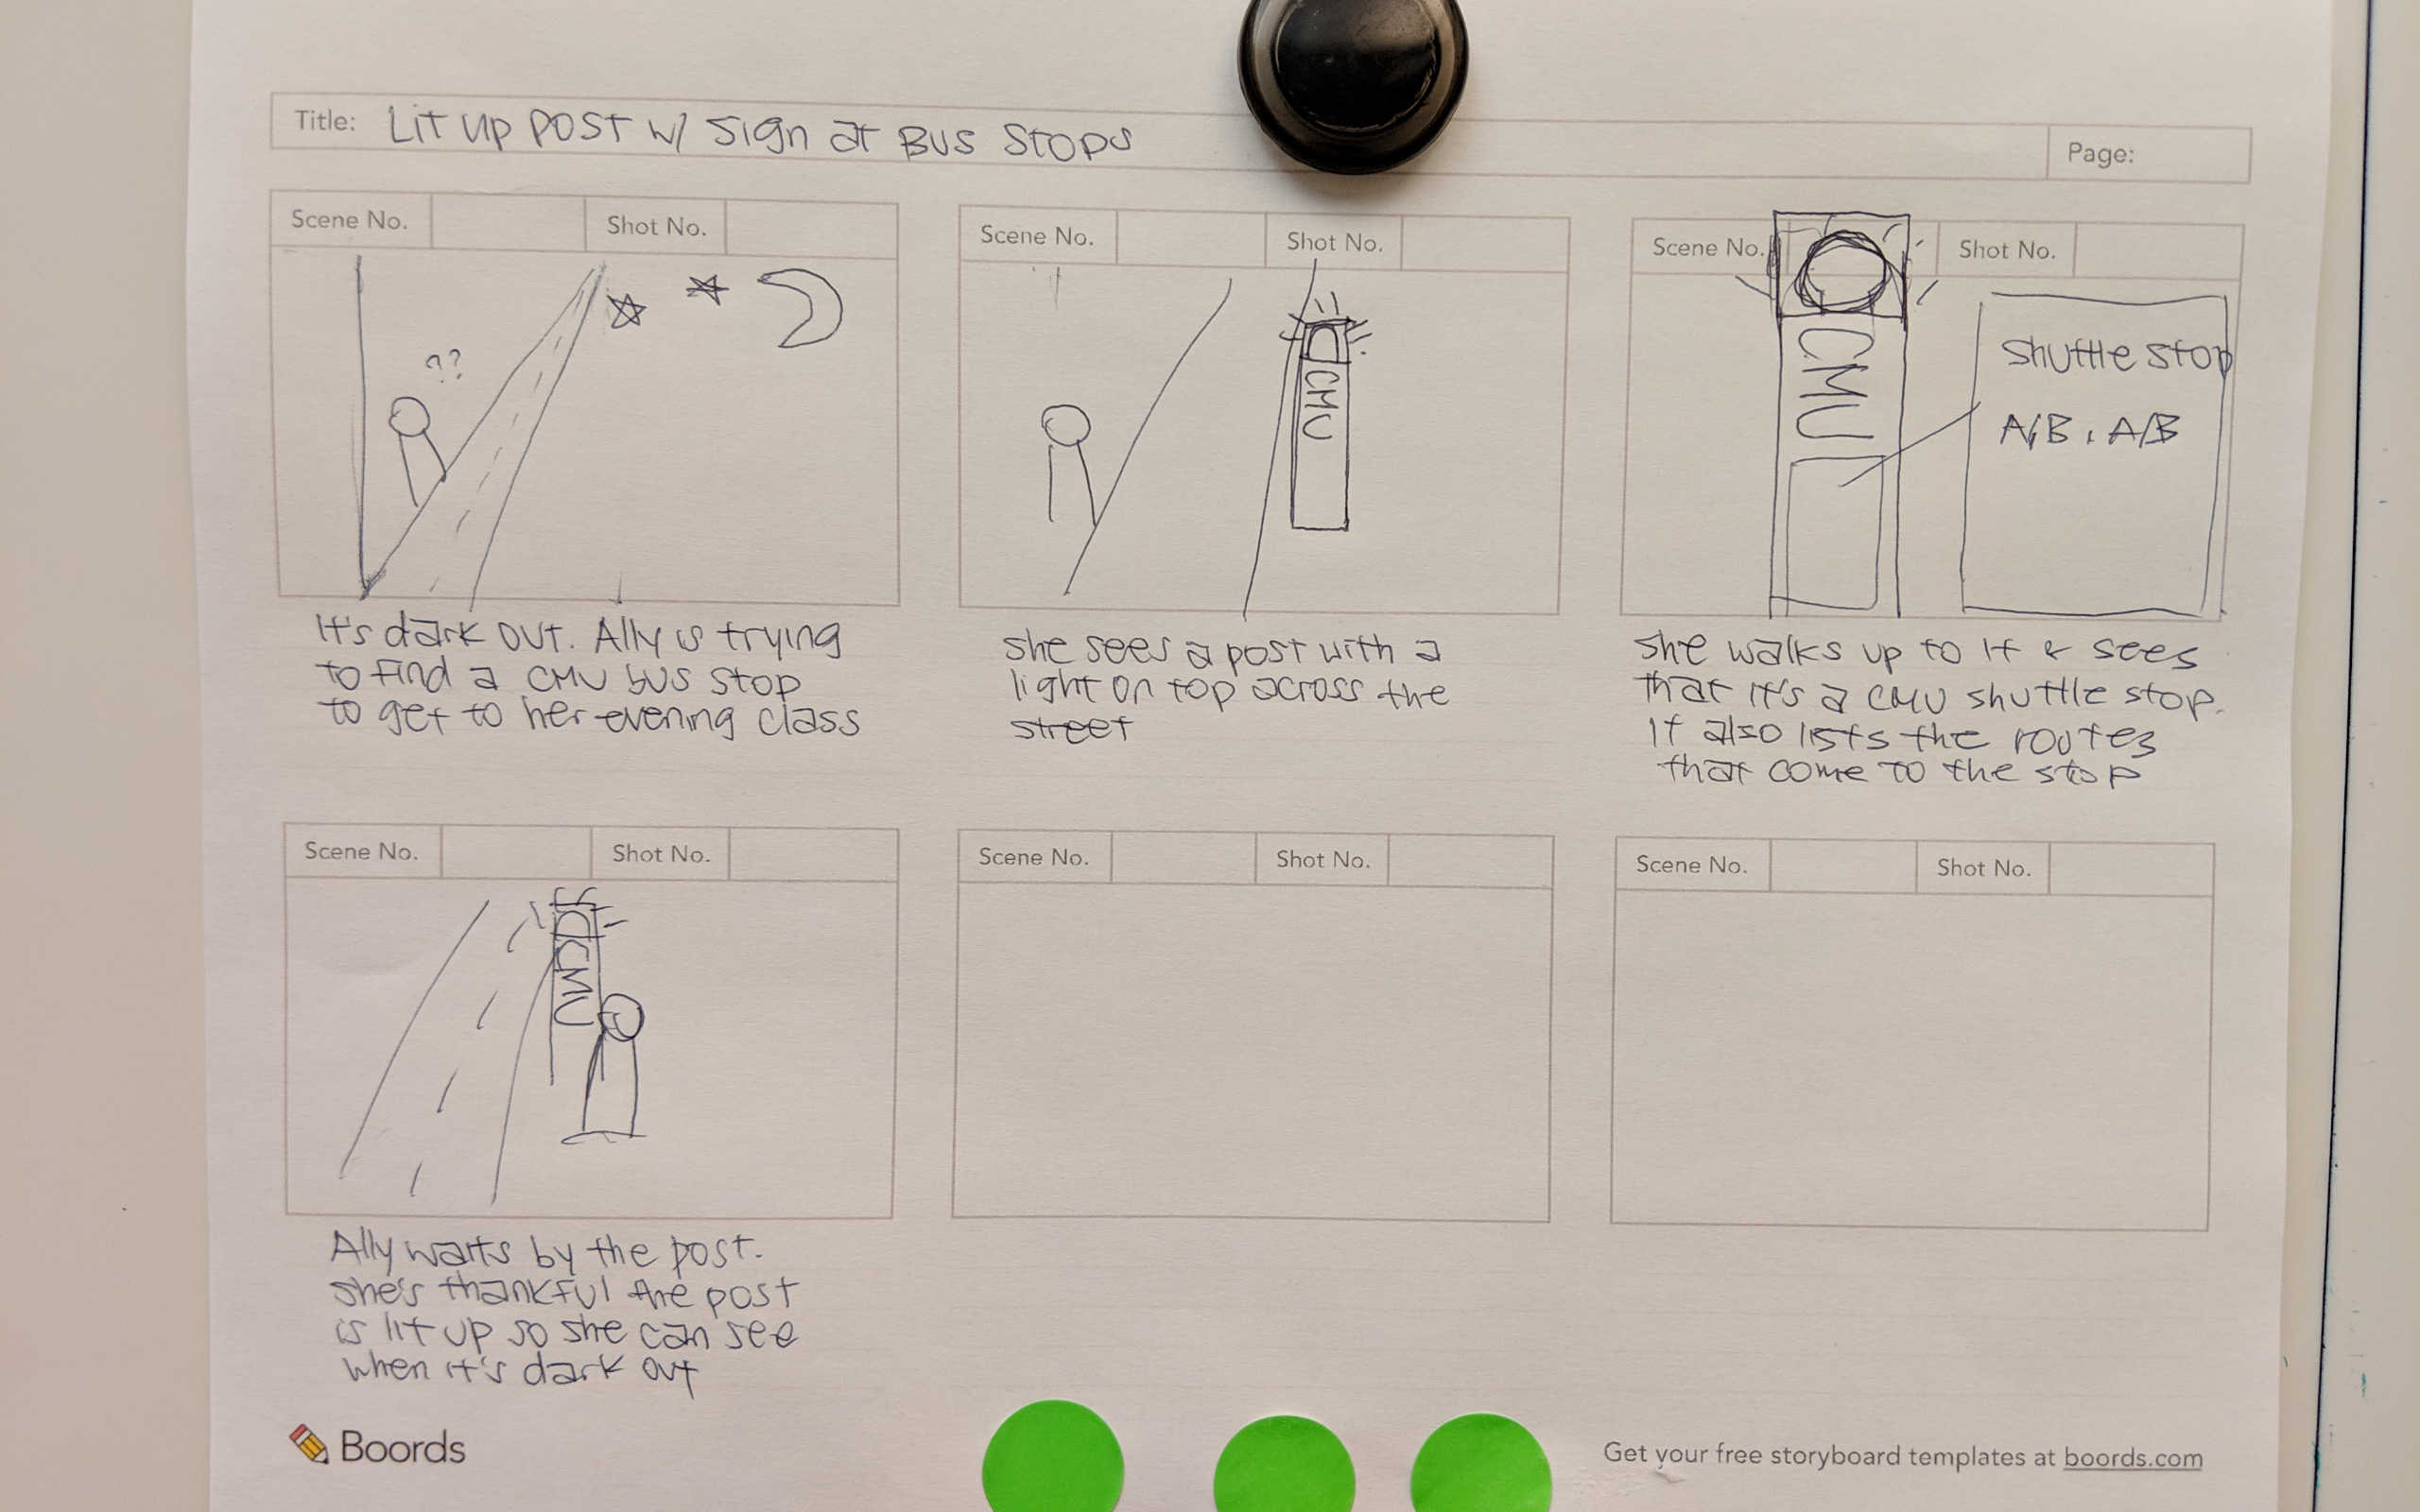 Title: Lit up post w/ sign at Bus Stops
Page:
Scene No. Shot No.
??
It's dark out. Ally is trying
to find a CMU bus stop
to get to her evening class
Scene No. Shot No.
CMU
she sees a post with a
light on top across the
street
Scene No. Shot No.
CMU
Shuttle stop
A/B, A/B
she walks up to it & sees
that it's a CMU shuttle stop.
it also lists the routes
that come to the stop
Scene No. Shot No.
CMU
Ally waits by the post.
she's thankful the post
is lit up so she can see
when it's dark out
Scene No. Shot No.
Scene No. Shot No.
Boords
Get your free storyboard templates at boords.com